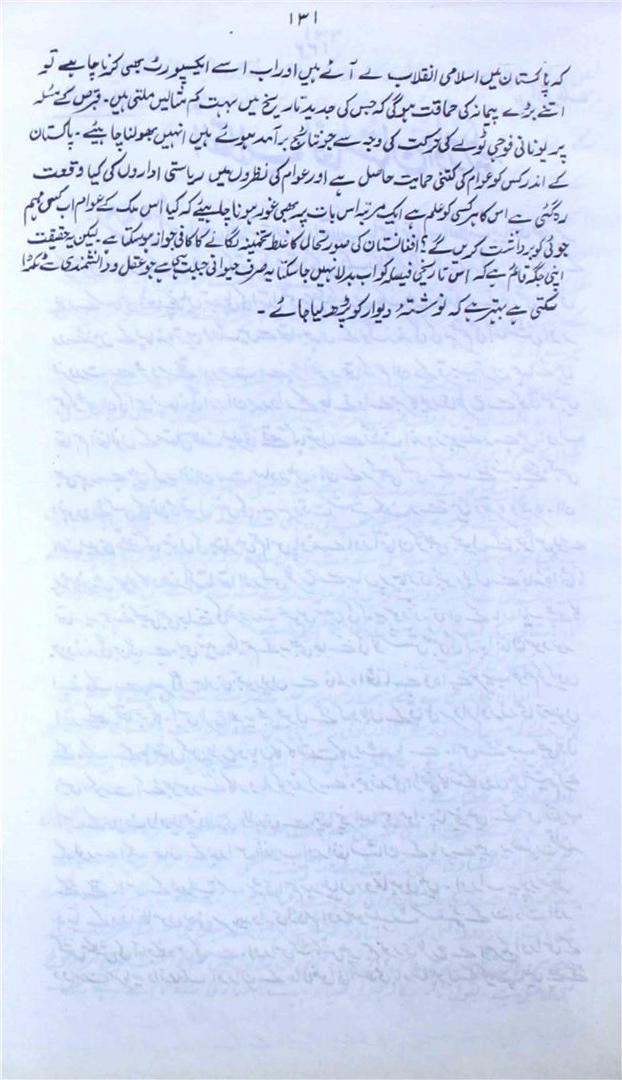 ۱۳۱
کہ پاکستان میں اسلامی انقلاب لے آئے ہیں اور اب اسے ایکسپورٹ بھی کرنا چاہیے تو یہ
اتنے بڑے پیمانہ کی حماقت ہوگی کہ جس کی جدید تاریخ میں بہت کم مثالیں ملتی ہیں۔ قبرص کے مسئلہ
پر یونانی فوجی ٹولے کی حرکت کی وجہ سے جو نتائج برآمد ہوئے ہیں انہیں بھولنا چاہیئے۔ پاکستان
کے اندر کس کو عوام کی کتنی حمایت حاصل ہے اور عوام کی نظروں میں ریاستی اداروں کی کیا وقعت
رہ گئی ہے اس کا ہر کسی کو علم ہے ایک مرتبہ اس بات پر بھی غور ہونا چاہیئے کہ کیا اس ملک کے عوام اب کسی مہم
جوئی کو برداشت کریں گے؟ افغانستان کی صورتحال کا غلط تخمینہ لگانے کا کافی جواز ہو سکتا ہے۔ لیکن یہ حقیقت
اپنی جگہ قائم ہے کہ اس تاریخی فیصلہ کو اب بدلا نہیں جا سکتا یہ صرف حیوانی جبلت ہی ہے جو عقل و دانشمندی سے ٹکرا
سکتی ہے بہتر ہے کہ نوشتۂ دیوار کو پڑھ لیا جائے۔